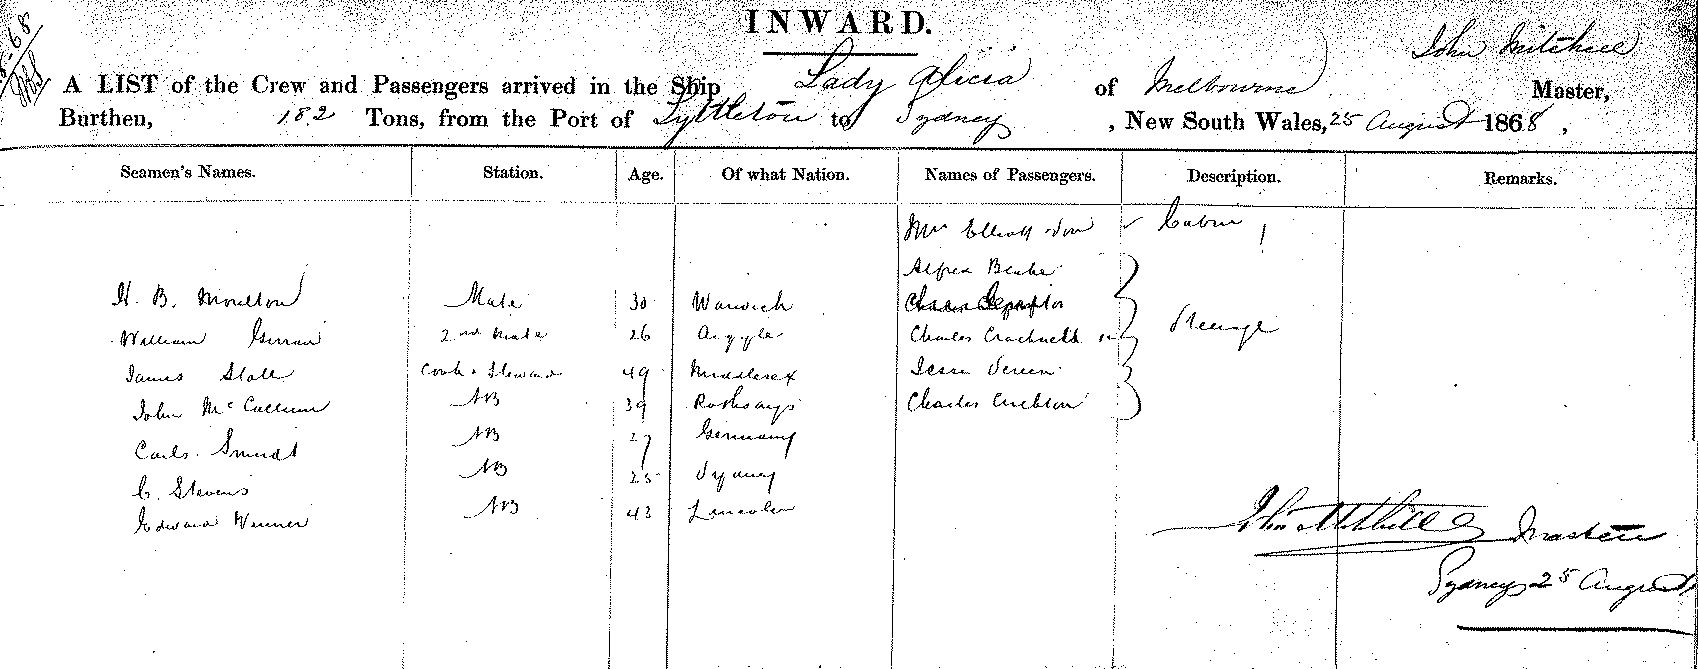 INWARD.
John Mitchell
A LIST of the Crew and Passengers arrived in the Ship Lady Alicia of Melbourne Master,
Burthen, 182 Tons, from the Port of Lyttleton to Sydney , New South Wales, 25 August 1868 ,
Seamen's Names. Station. Age. Of what Nation. Names of Passengers. Description. Remarks.
Mrs Elliott Cabin
Alfred
H. B. Moulton Mate 30 Warwick
William 2nd Mate 26 Argyle Charles Cracknell Steerage
James Cook & Steward 49 Middlesex
John McCallum AB 39 Rothsay Charles
Carls AB 27 Germany
C. Stevens AB 25 Sydney
Edward AB 43 Lincoln
John Mitchell Master
Sydney 25 August